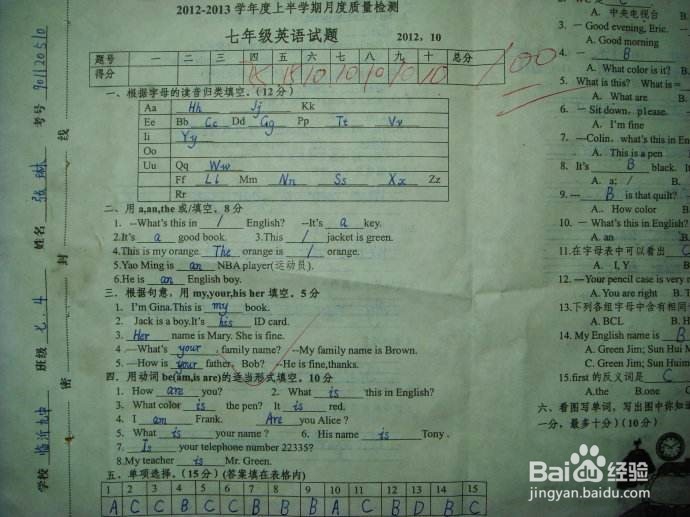 2012-2013 学年度上半学期月度质量检测
七年级英语试题 2012，10
题号 一 二 三 四 五 六 七 八 九 十 总分
得分 15 15 10 10 10 10 10 100
一、根据字母的读音归类填空。(12 分)
Aa Hh Jj Kk
Ee Bb Cc Dd Gg Pp Tt Vv
Ii Yy
Oo
Uu Qq Ww
Ff Ll Mm Nn Ss Xx Zz
Rr
二、用 a,an,the 或/填空。8 分
1. --What's this in / English? --It's a key.
2.It's a good book. 3.This / jacket is green.
4.This is my orange. The orange is / orange.
5.Yao Ming is an NBA player(运动员).
6.He is an English boy.
三、根据句意，用 my,your,his her 填空。5 分
1. I'm Gina.This is my book.
2. Jack is a boy.It's his ID card.
3. Her name is Mary. She is fine.
4. --What's your family name? --My family name is Brown.
5. --How is your father, Bob? --He is fine,thanks.
四、用动词 be(am,is are)的适当形式填空。10 分
1. How are you? 2. What is this in English?
3. What color is the pen? It is red.
4. I am Frank. Are you Alice ?
5. What is your name ? 6. His name is Tony .
7. Is your telephone number 22335?
8.My teacher is Mr. Green.
五、单项选择。(15 分) (答案填在表格内)
1 2 3 4 5 6 7 8 9 10 11 12 13 14 15
A C C B C C B B B A C B D B C
A. 中央电视台
3. — Good evening, Eric.
A. Good morning
4. — B
A. What color is it?
5. What is this? What is=
A. What are
6. — Sit down, please.
A. I'm fine
7. —Colin, what's this in En
A. This is a pen
8. It's B black. It
A. a; /
9.--- B is that quilt?
A.. How color
10. — What's this in English?
A. an
11.在字母表中可以看出 C
A. I, Y
12. —Your pencil case is very n
A. You are right
13.下列各组字母中含有相同
A. BCL
14. My English name is B
A. Green Jim; Sun Hui
C. Green Jim; Sun Hui
15.first 的反义词是 C
A.the B.one
六、看图写单词，写出图中你知
一分，最多十分) (10 分)
学校 临沂九中 班级 七.4 姓名 张琳 考号 901120510
密 封 线
Baidu 经验
jingyan.baidu.com